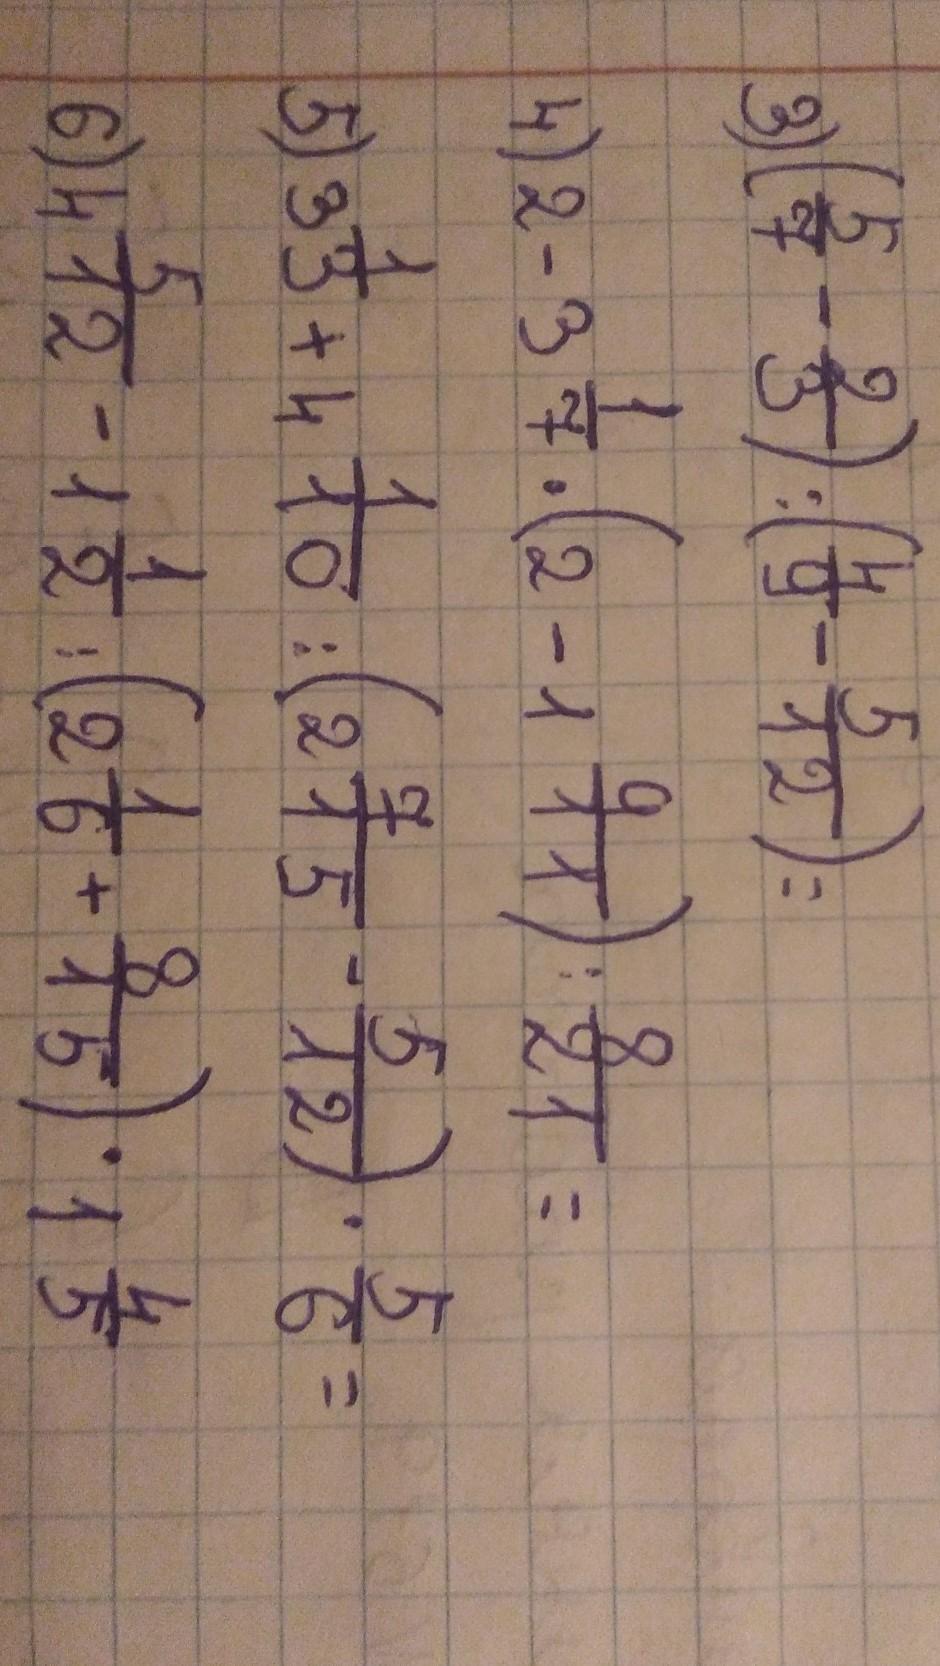 3) (5/7 - 2/3) : (4/9 - 5/12) =
4) 2 - 3 1/7 · (2 - 1 9/11) : 8/21 =
5) 3 1/3 + 4 1/10 : (2 7/15 - 5/12) · 5/6 =
6) 4 5/12 - 1 1/2 : (2 1/6 + 8/15) · 1 4/5